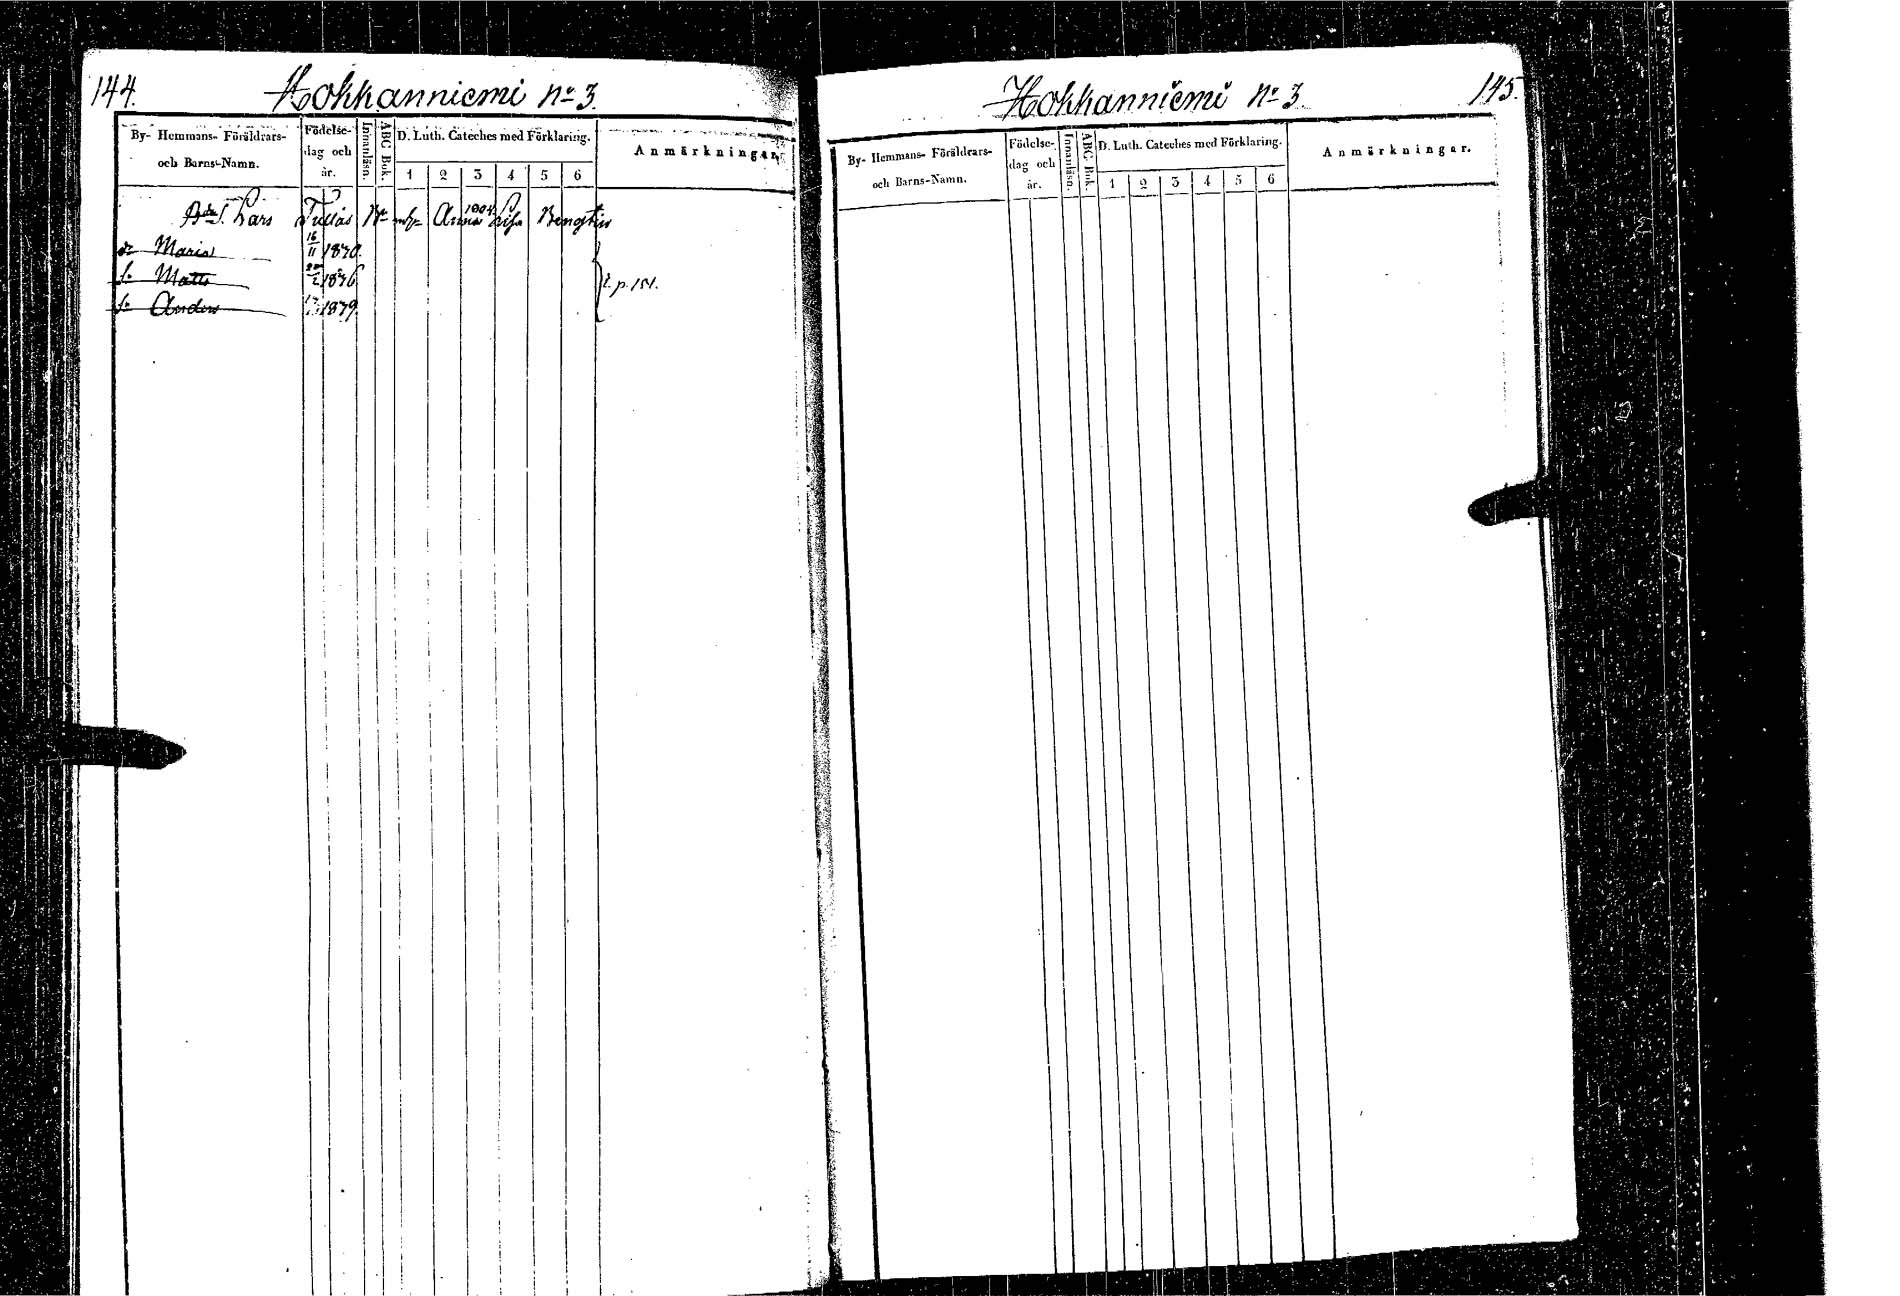 144.
Hokkanniemi No 3.
By- Hemmans- Föräldrars-
och Barns-Namn.
Födelse-
dag och
år.
Innanläsn.
ABC Bok.
D. Luth. Cateches med Förklaring.
1 2 3 4 5 6
Anmärkningar.
Lars Anna Lisa
Maria 16/11 1870.
s. Matts 1876
s. Anders 1879.
p. 151.
Hokkanniemi No 3.
145.
By- Hemmans- Föräldrars-
och Barns-Namn.
Födelse-
dag och
år.
Innanläsn.
ABC. Bok.
D. Luth. Cateches med Förklaring.
1 2 3 4 5 6
Anmärkningar.